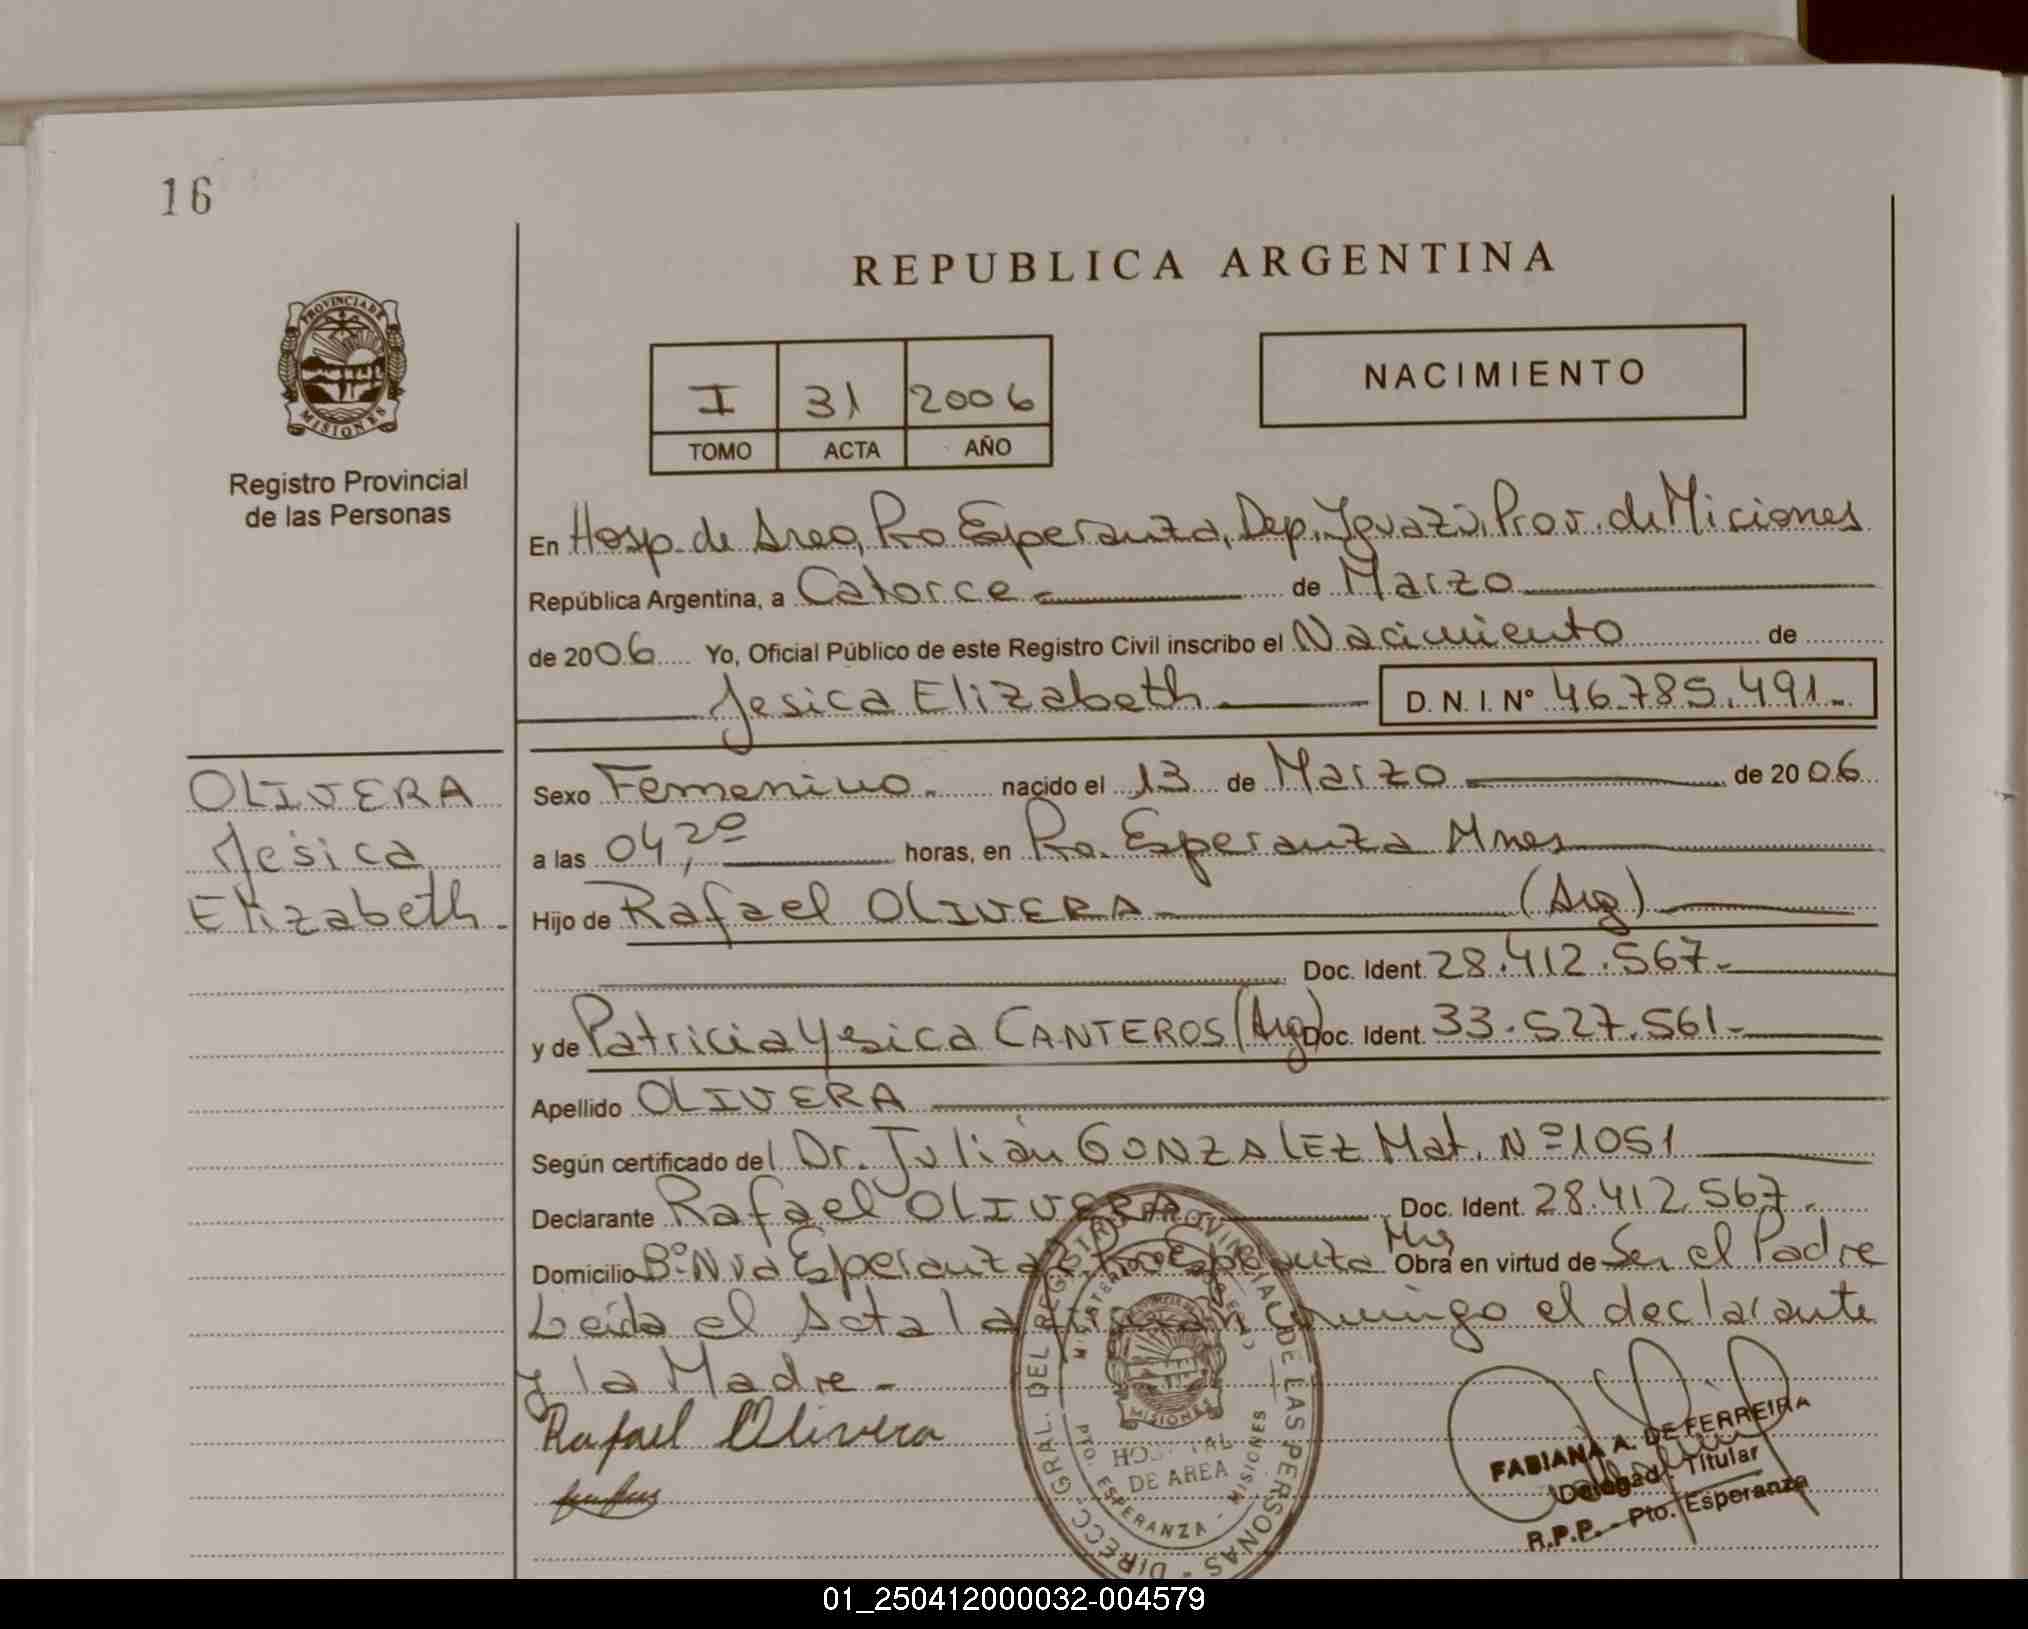 16
REPUBLICA ARGENTINA
PROVINCIA DE
MISIONES
Registro Provincial
de las Personas
I 31 2006
TOMO ACTA AÑO
NACIMIENTO
En Hosp. de Area, Pto Esperanza, Dep. Iguazú, Prov. de Miciones
República Argentina, a Catorce de Marzo
de 2006 Yo, Oficial Público de este Registro Civil inscribo el Nacimiento de
Jesica Elizabeth D. N. I. Nº 46.785.491.-
OLIVERA
Jesica
Elizabeth.-
Sexo Femenino.- nacido el 13 de Marzo de 2006
a las 04,20 horas, en Pto. Esperanza Mnes
Hijo de Rafael OLIVERA (Arg)
Doc. Ident. 28.412.567.-
y de Patricia Ysica CANTEROS (Arg) Doc. Ident. 33.527.561.-
Apellido OLIVERA
Según certificado del Dr. Julián GONZALEZ Mat. Nº 1051
Declarante Rafael OLIVERA Doc. Ident. 28.412.567.-
Domicilio Bº Nva Esperanza Pto Esperanza Mns Obra en virtud de Ser el Padre
Leida el Acta la firman conmigo el declarante
y la Madre.-
Rafael Olivera
DIRECC. GRAL. DEL REGISTRO PROVINCIAL DE LAS PERSONAS
MISIONES
HOSPITAL
DE AREA
PTO. ESPERANZA - MISIONES
FABIANA A. DE FERREIRA
Delegad. Titular
R.P.P. - Pto. Esperanza
01_250412000032-004579